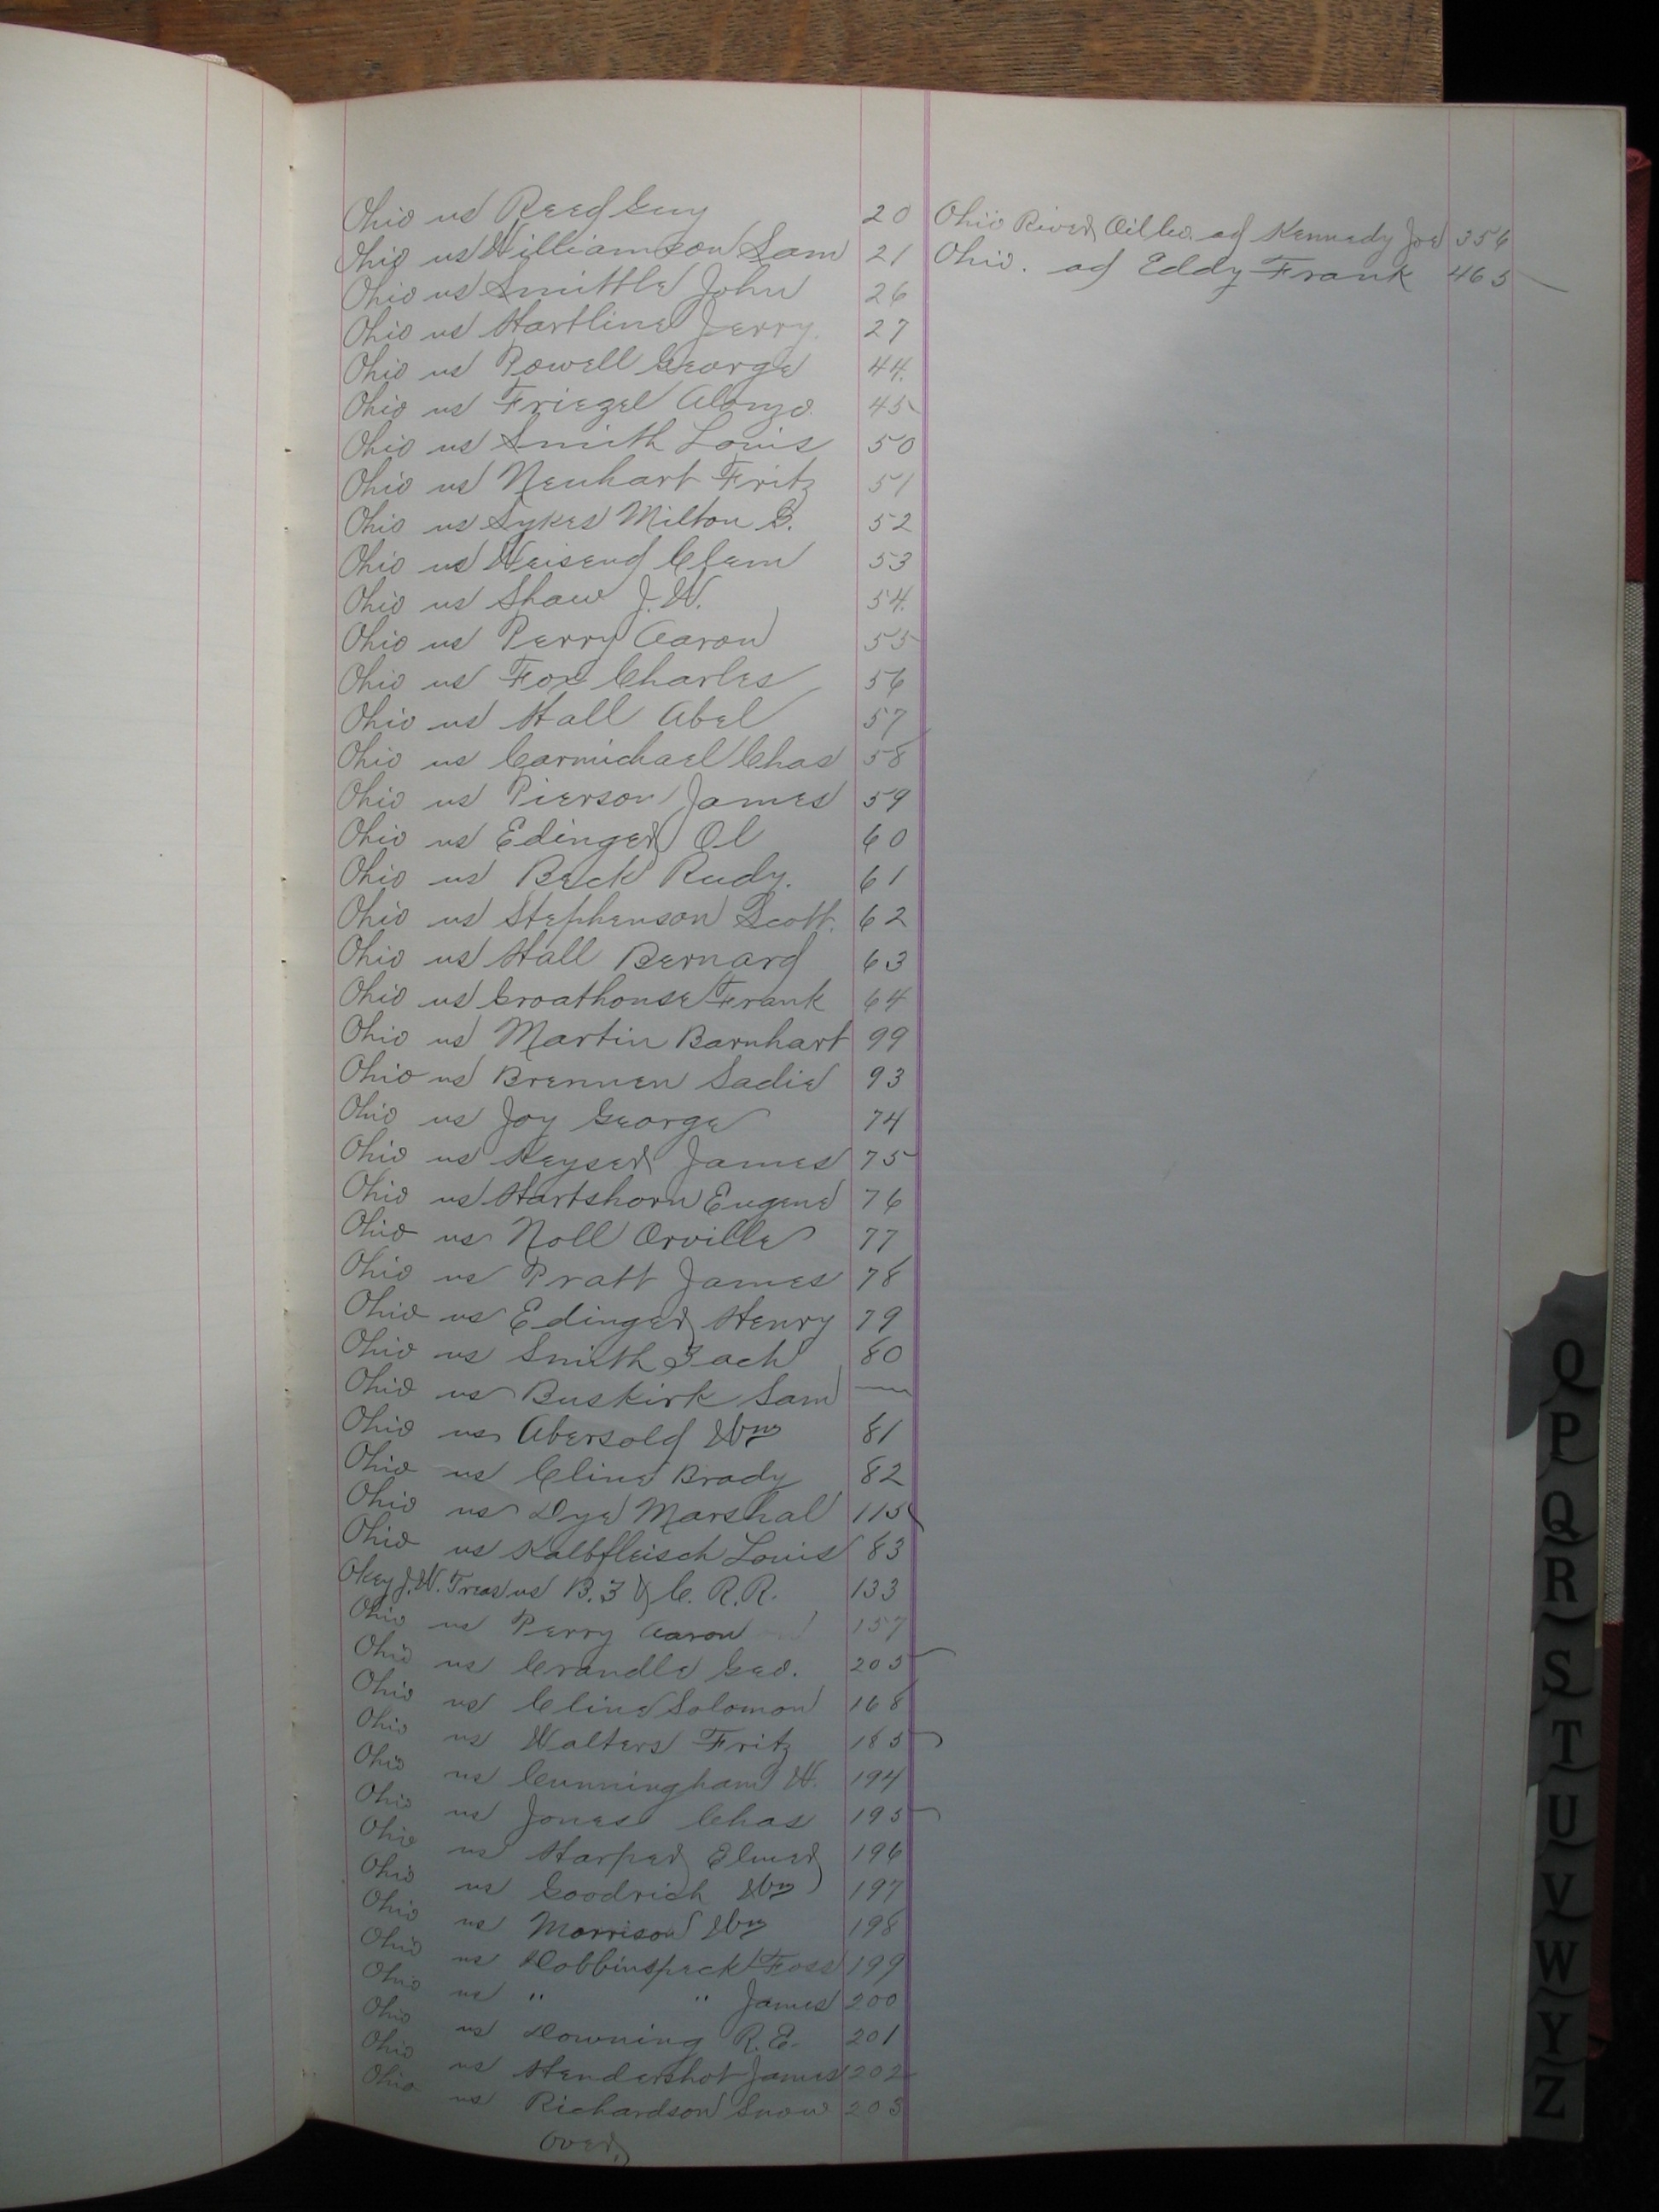 Ohio vs Reed Guy 20
Ohio vs Williamson Sam 21
Ohio vs Smittle John 26
Ohio vs Hartline Jerry. 27
Ohio vs Powell George 44.
Ohio vs Friezel Alonzo. 45
Ohio vs Smith Louis 50
Ohio vs Neuhart Fritz 51
Ohio vs Sykes Milton G. 52
Ohio vs Weisend Clem 53
Ohio vs Shaw J.W. 54.
Ohio vs Perry Aaron 55
Ohio vs Fox Charles 56
Ohio vs Hall Abel 57
Ohio vs Carmichael Chas 58
Ohio vs Pierson James 59
Ohio vs Edinger Ol 60
Ohio vs Beck Rudy. 61
Ohio vs Stephenson Scott. 62
Ohio vs Hall Bernard 63
Ohio vs Groathouse Frank 64
Ohio vs Martin Barnhart 99
Ohio vs Brennen Sadie 93
Ohio vs Joy George 74
Ohio vs Keyser James 75
Ohio vs Hartshorn Eugene 76
Ohio vs Noll Orville 77
Ohio vs Pratt James 78
Ohio vs Edinger Henry 79
Ohio vs Smith Zach 80
Ohio vs Buskirk Sam —
Ohio vs Abersold Wm 81
Ohio vs Cline Brady 82
Ohio vs Dye Marshal 115
Ohio vs Kalbfleisch Louis 83
Okey J.W. Treas vs B. Z & C. R.R. 133
Ohio vs Perry Aaron 157
Ohio vs Crandle Geo. 205
Ohio vs Cline Solomon 168
Ohio vs Walters Fritz 185
Ohio vs Cunningham W. 194
Ohio vs Jones Chas 195
Ohio vs Harper Elmer 196
Ohio vs Goodrich Wm 197
Ohio vs Morrison Wm 198
Ohio vs Dobbinspeck Foss 199
Ohio vs " " James 200
Ohio vs Downing R.E. 201
Ohio vs Hendershot James 202
Ohio vs Richardson Snow 203
Over
Ohio River Oil Co. ad Kennedy Joe 356
Ohio. ad Eddy Frank 465
Q
P
Q
R
S
T
U
V
W
Y
Z